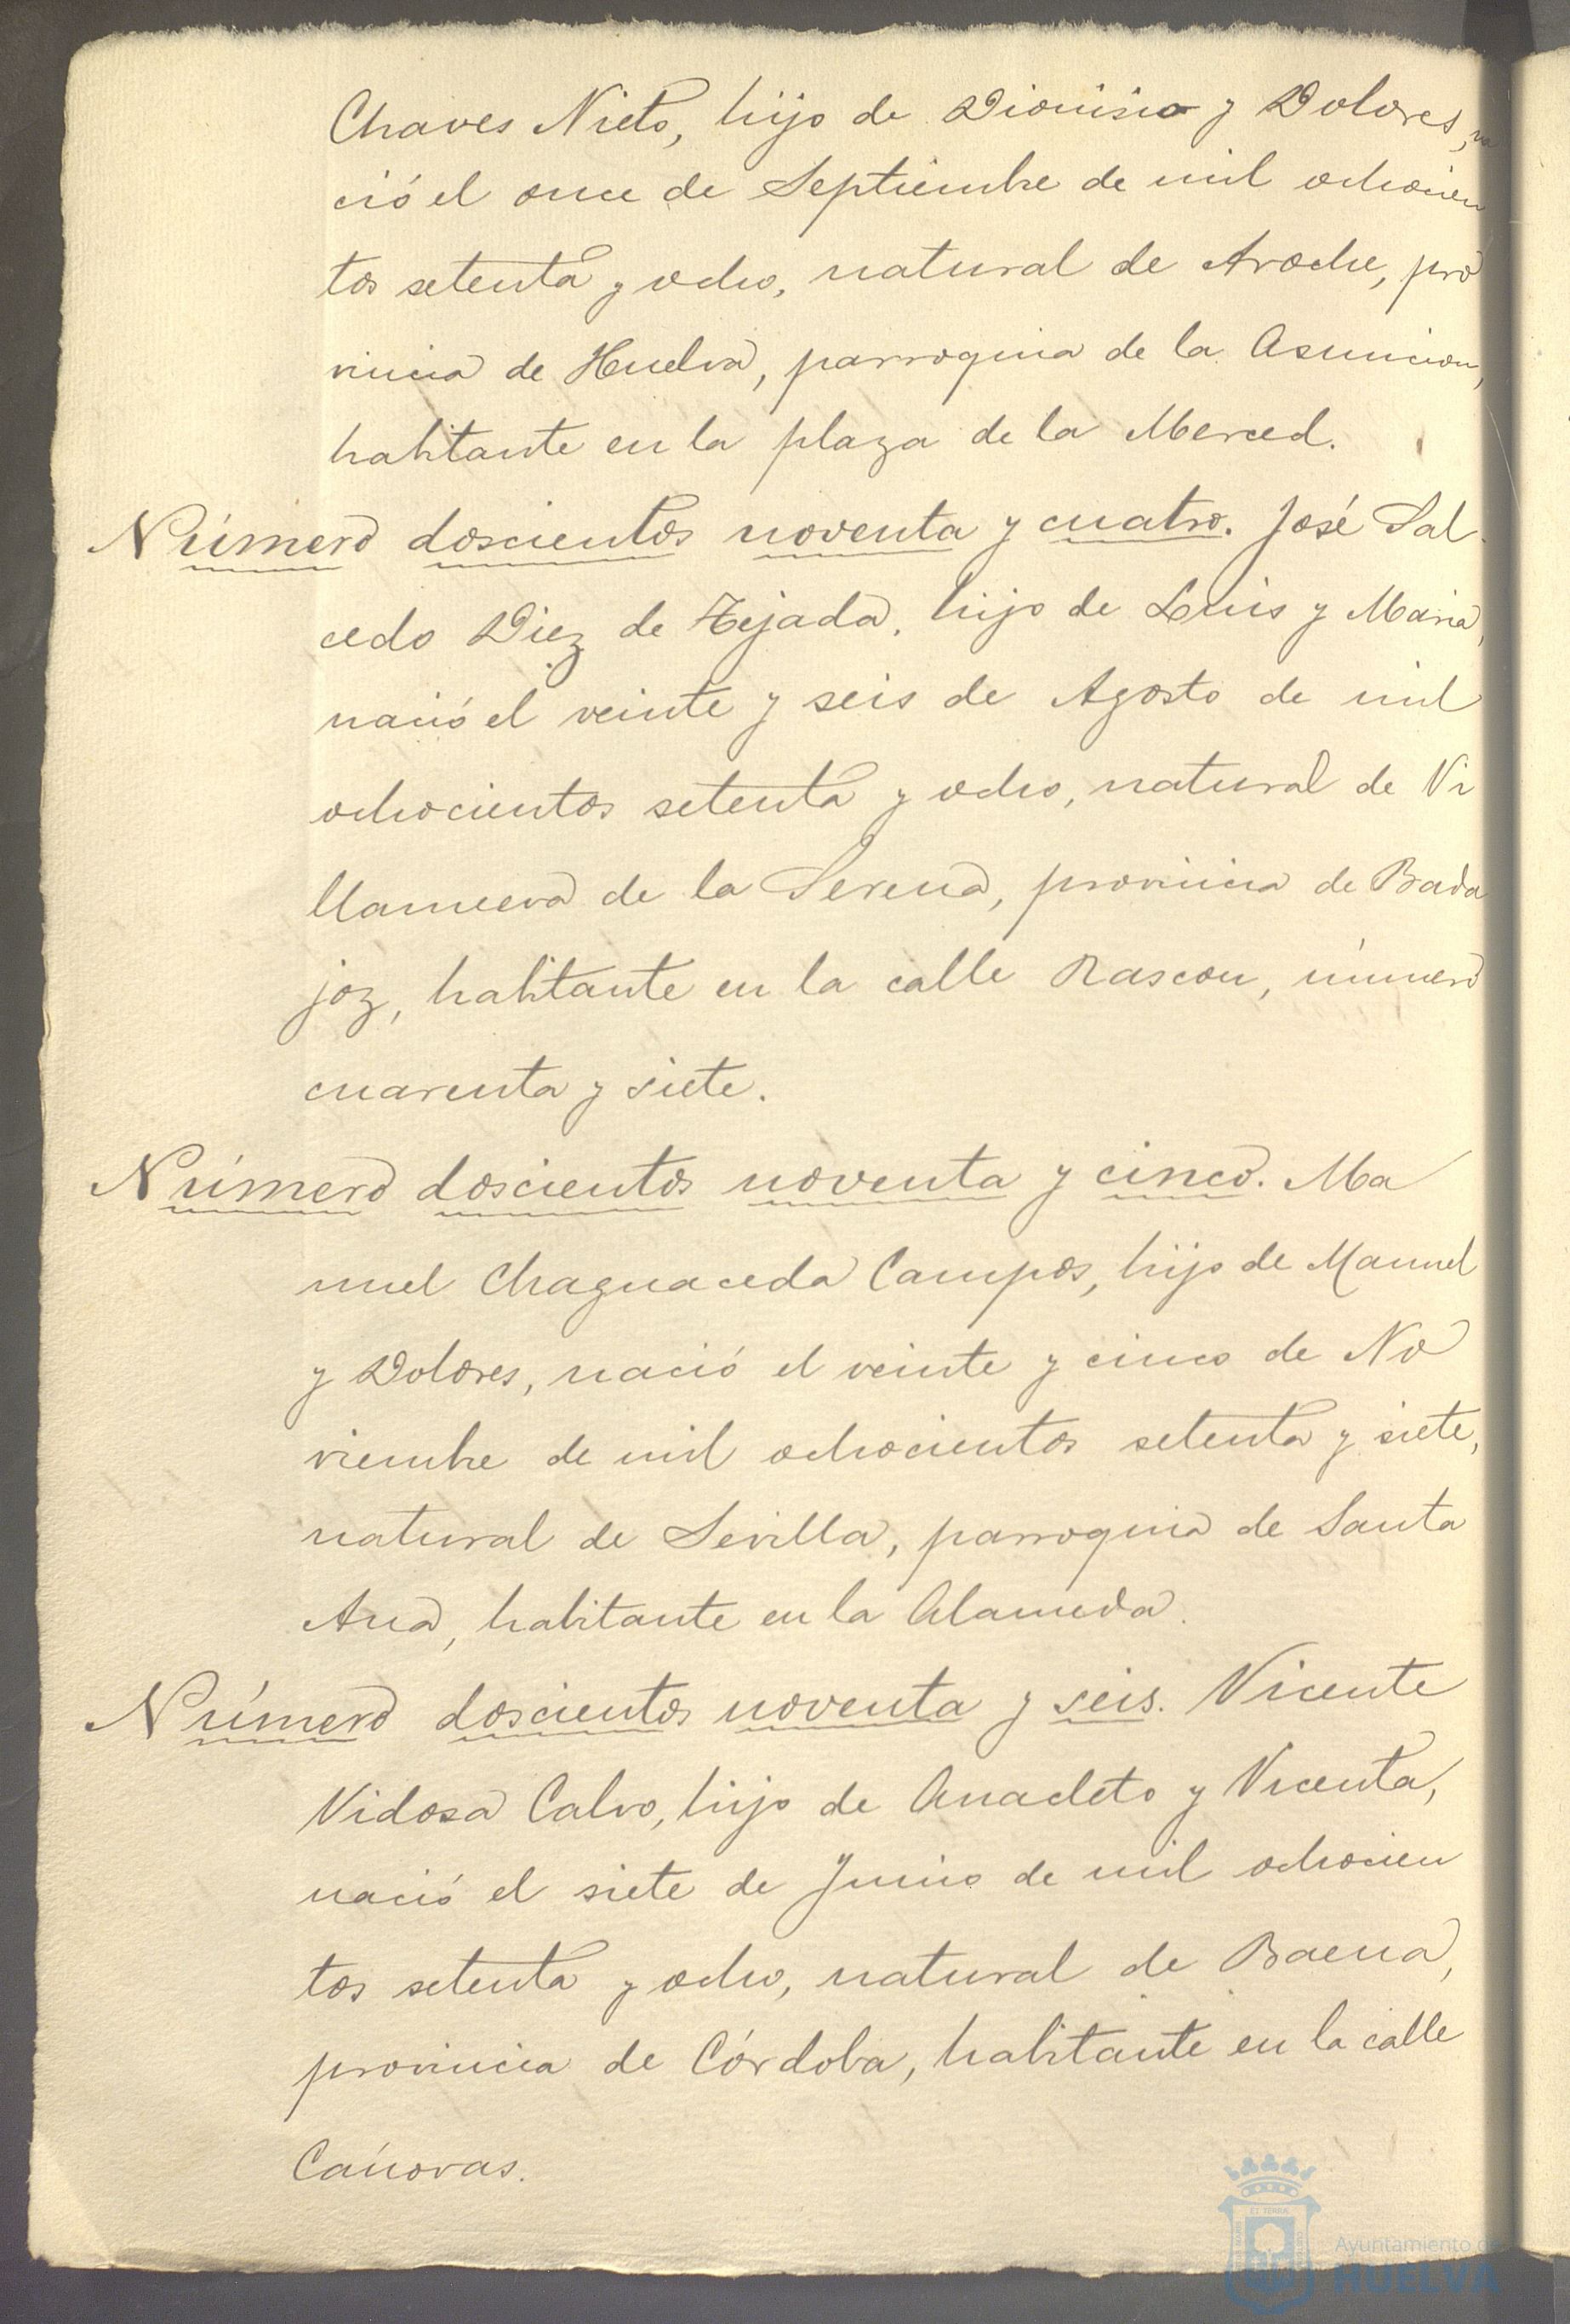 Chaves Nieto, hijo de Dionisio y Dolores, na
ció el once de Septiembre de mil ochocien
tos setenta y ocho, natural de Aroche, pro
vincia de Huelva, parroquia de la Asuncion,
habitante en la plaza de la Merced.
Número doscientos noventa y cuatro. José Sal
cedo Diez de Tejada, hijo de Luis y Maria,
nació el veinte y seis de Agosto de mil
ochocientos setenta y ocho, natural de Vi
llanueva de la Serena, provincia de Bada
joz, habitante en la calle Rascon, número
cuarenta y siete.
Número doscientos noventa y cinco. Ma
nuel Chaguaceda Campos, hijo de Manuel
y Dolores, nació el veinte y cinco de No
viembre de mil ochocientos setenta y siete,
natural de Sevilla, parroquia de Santa
Ana, habitante en la Alameda.
Número doscientos noventa y seis. Vicente
Vidosa Calvo, hijo de Anacleto y Vicenta,
nació el siete de Junio de mil ochocien
tos setenta y ocho, natural de Baena,
provincia de Córdoba, habitante en la calle
Cánovas.
Ayuntamiento de
HUELVA